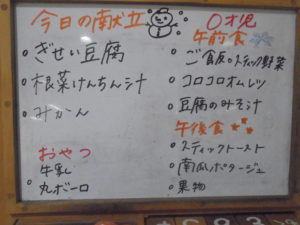 今日の献立
ぎせい豆腐
根菜けんちん汁
みかん
おやつ
牛乳
丸ボーロ
0才児
午前食
ご飯 スティック野菜
コロコロオムレツ
豆腐のみそ汁
午後食
スティックトースト
南瓜ポタージュ
果物